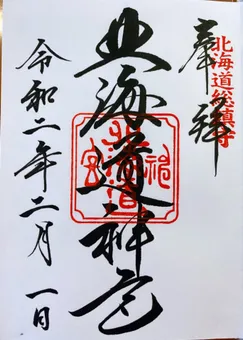 奉拝
北海道総鎮守
北海道神宮
北海道神宮
令和二年二月一日